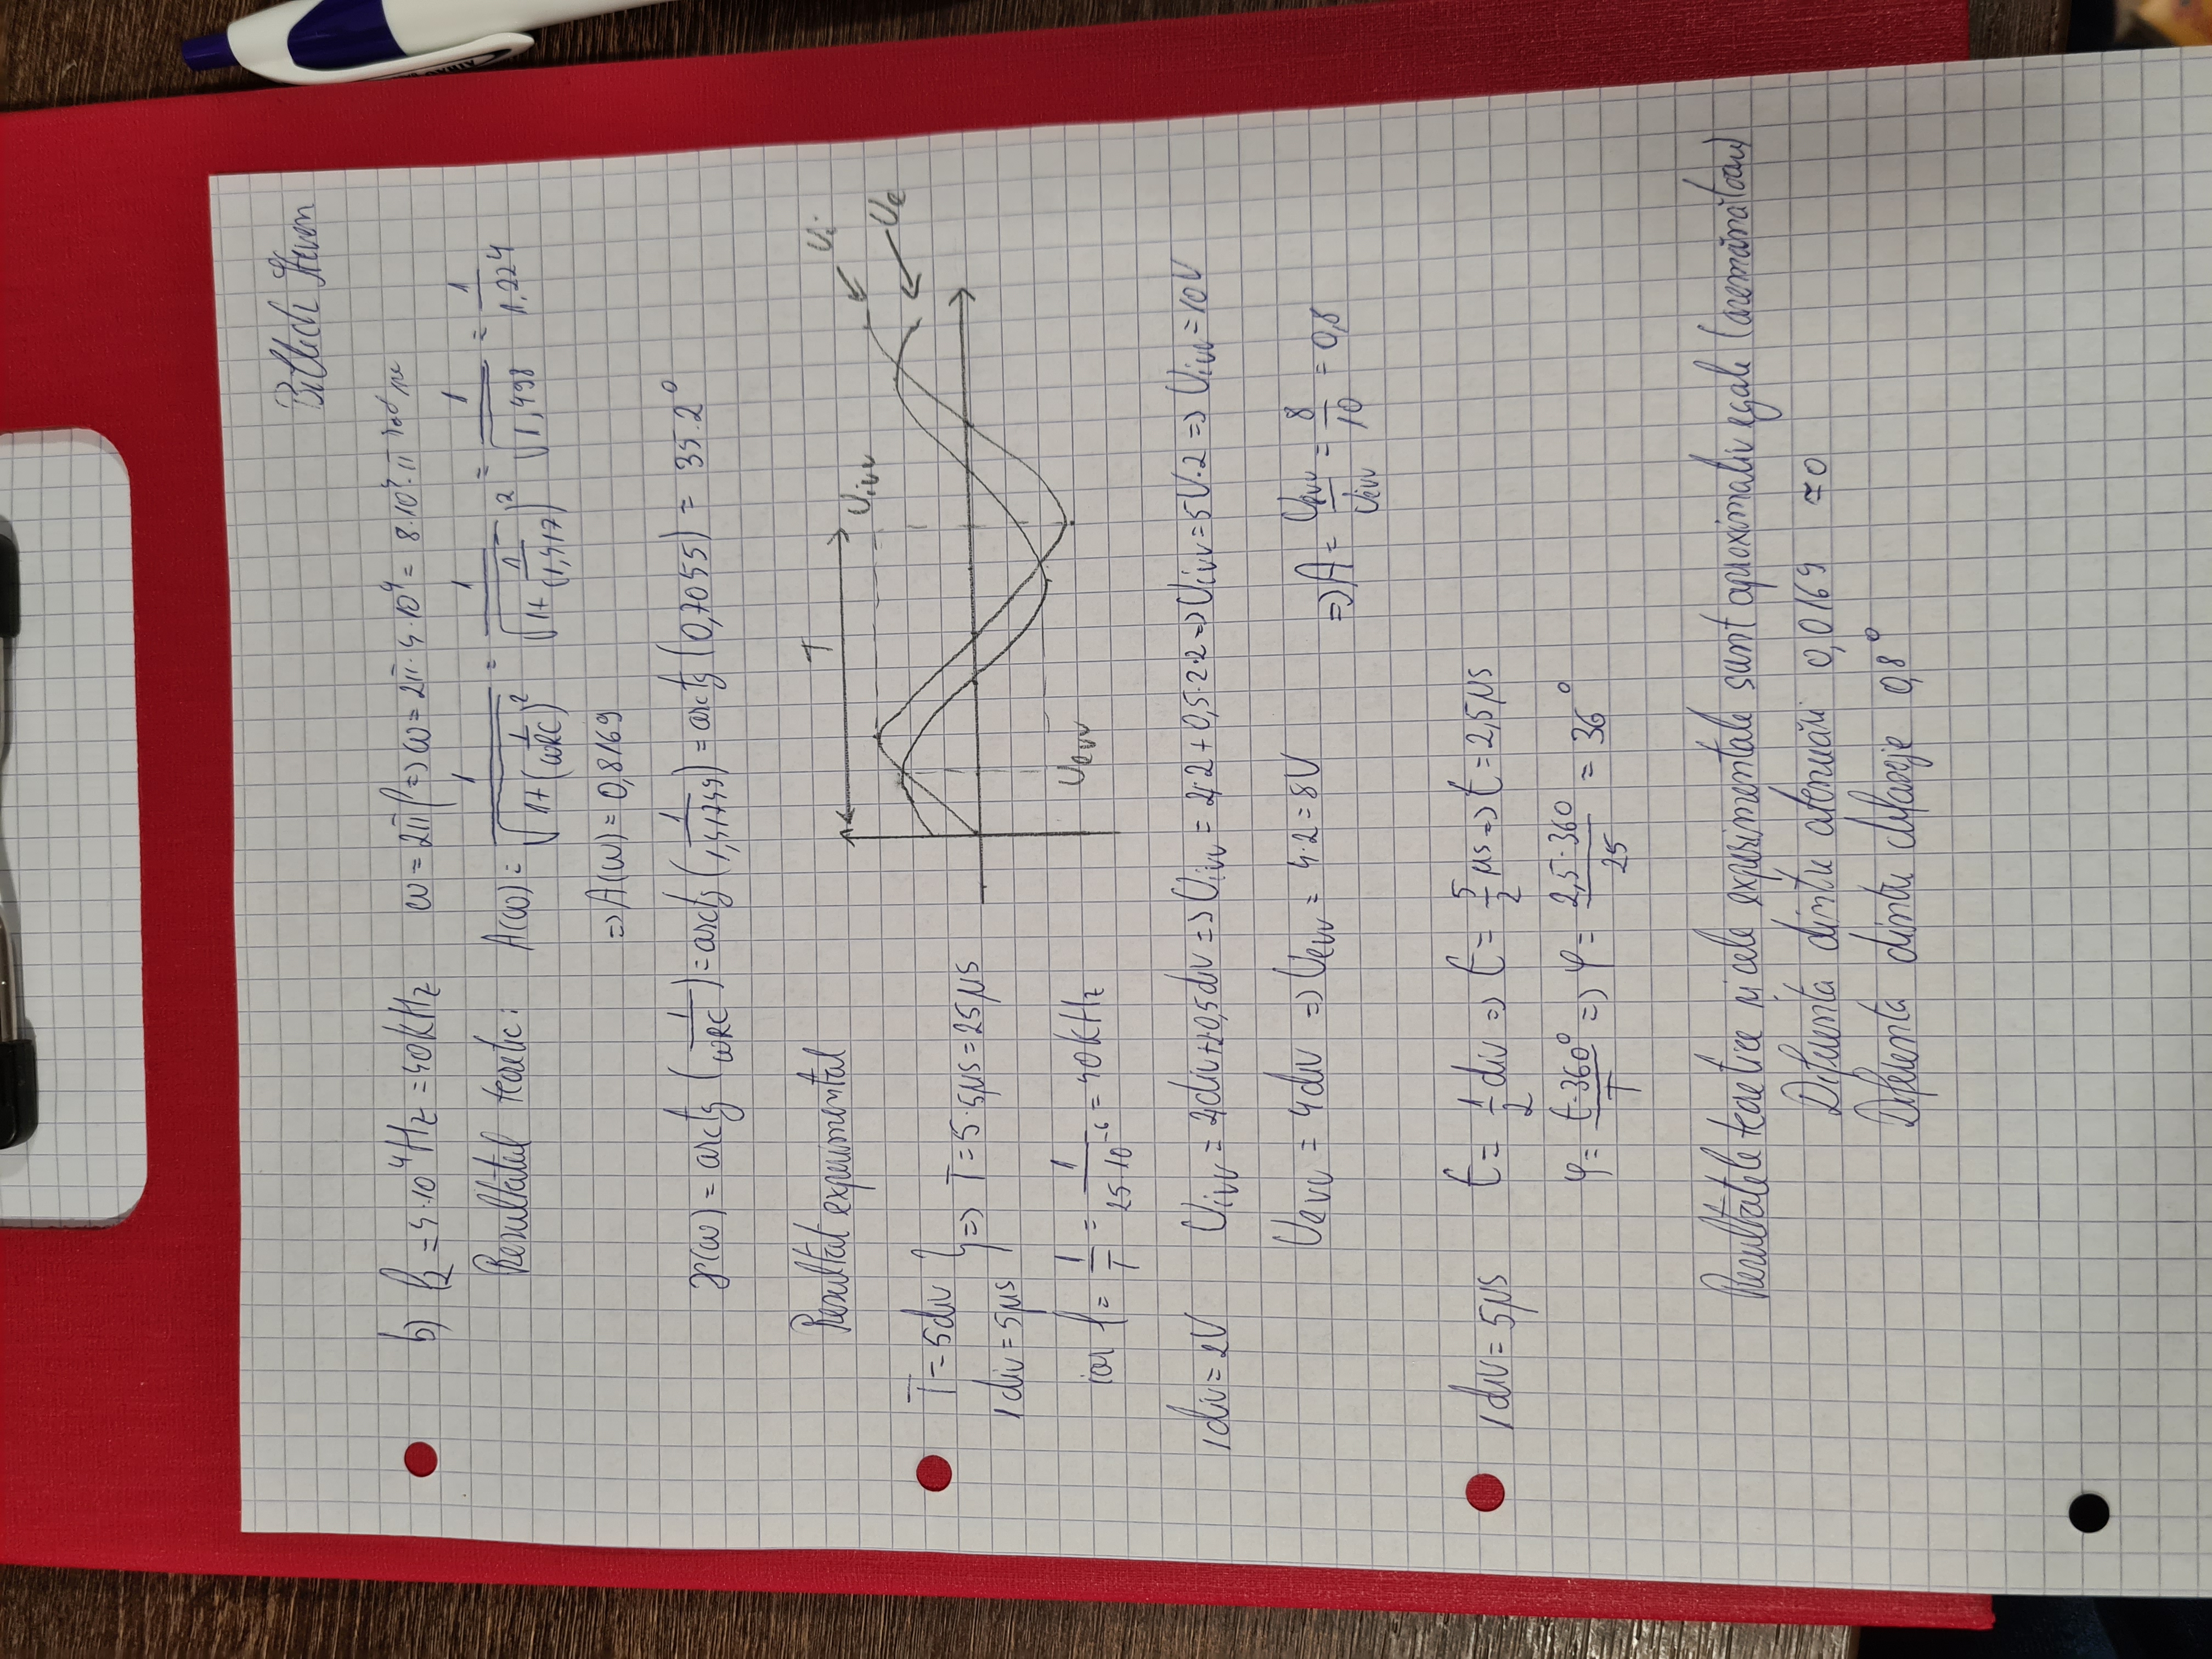 Bittlich Steven
b) f₂ = 4·10⁴Hz = 40kHz   ω = 2πf => ω = 2π·4·10⁴ = 8·10⁴·π rad/sec
Rezultatul teoretic: A(ω) = 1/√(1+(1/ωRC)²) = 1/√(1+(1/1,417)²) = 1/√1,498 = 1/1,224
=> A(ω) = 0,8169
φ(ω) = arctg (1/ωRC) = arctg (1/1,41749) = arctg (0,7055) = 35.2°
Rezultat experimental
T
Ui
Uivv
Ue
T = 5div
1div = 5μs
} => T = 5·5μs = 25μs
Uevv
iar f = 1/T = 1/25·10⁻⁶ = 40kHz
1div = 2V   Uivv = 4div+2·0,5div => Uivv = 4·2 + 0,5·2·2 => Uivv = 5V·2 => Uivv = 10V
Uevv = 4div => Uevv = 4·2 = 8V   => A = Uevv/Uivv = 8/10 = 0,8
1div = 5μs   t = 1/2 div => t = 5/2 μs => t = 2,5μs
φ = t·360°/T => φ = 2,5·360/25 = 36°
Rezultatele teoretice și cele experimentale sunt aproximativ egale (asemănătoare)
Diferenta dintre atenuări 0,0169 ≈0
Diferenta dintre defazaje 0,8°